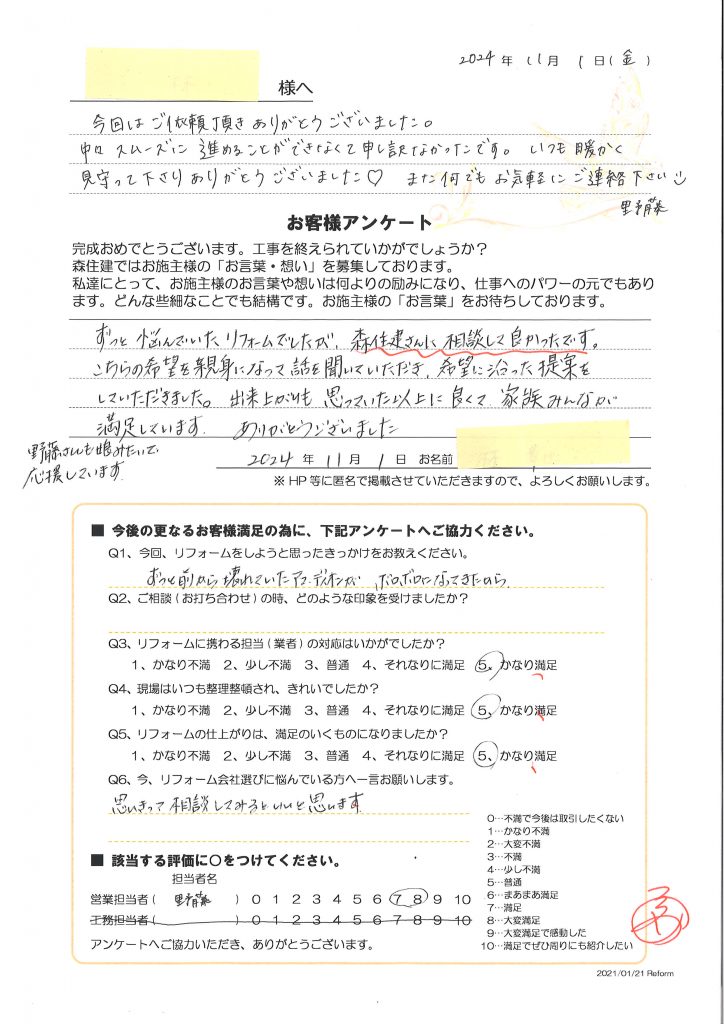 2024年 11月 1日(金)
様へ
今回はご依頼頂きありがとうございました。
中々スムーズに進めることができなくて申し訳なかったです。いつも暖かく
見守って下さりありがとうございました♡ また何でもお気軽にご連絡下さい
野藤
お客様アンケート
完成おめでとうございます。工事を終えられていかがでしょうか?
森住建ではお施主様の「お言葉・想い」を募集しております。
私達にとって、お施主様のお言葉や想いは何よりの励みになり、仕事へのパワーの元でもあり
ます。どんな些細なことでも結構です。お施主様の「お言葉」をお待ちしております。
ずっと悩んでいたリフォームでしたが、森住建さんに相談して良かったです。
こちらの希望を親身になって話を聞いていただき、希望に沿った提案を
していただきました。出来上がりも思っていた以上に良くて、家族みんなが
満足しています。ありがとうございました
野藤さんも娘みたいで、
応援しています。
2024年 11月 1日 お名前
※HP等に匿名で掲載させていただきますので、よろしくお願いします。
■ 今後の更なるお客様満足の為に、下記アンケートへご協力ください。
Q1、今回、リフォームをしようと思ったきっかけをお教えください。
ずっと前から壊れていたアコーディオンが ボロボロになってきたから
Q2、ご相談(お打ち合わせ)の時、どのような印象を受けましたか?
Q3、リフォームに携わる担当(業者)の対応はいかがでしたか?
1、かなり不満 2、少し不満 3、普通 4、それなりに満足 5、かなり満足
Q4、現場はいつも整理整頓され、きれいでしたか?
1、かなり不満 2、少し不満 3、普通 4、それなりに満足 5、かなり満足
Q5、リフォームの仕上がりは、満足のいくものになりましたか?
1、かなり不満 2、少し不満 3、普通 4、それなりに満足 5、かなり満足
Q6、今、リフォーム会社選びに悩んでいる方へ一言お願いします。
思いきって相談してみるといいと思います
■ 該当する評価に○をつけてください。
担当者名
営業担当者( 野藤 ) 0 1 2 3 4 5 6 7 8 9 10
工務担当者( ) 0 1 2 3 4 5 6 7 8 9 10
アンケートへご協力いただき、ありがとうございます。
0…不満で今後は取引したくない
1…かなり不満
2…大変不満
3…不満
4…少し不満
5…普通
6…まあまあ満足
7…満足
8…大変満足
9…大変満足で感動した
10…満足でぜひ周りにも紹介したい
2021/01/21 Reform